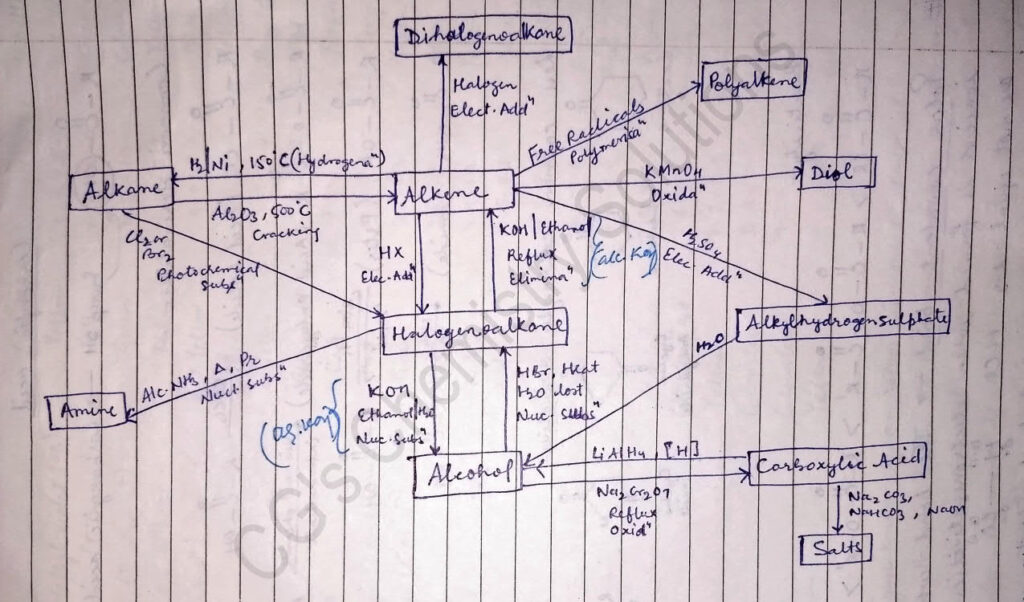 Dihalogenoalkane
Halogen
Elect. Addⁿ
Polyalkene
Free Radicals
Polymerisaⁿ
H₂/Ni, 150°C (Hydrogenaⁿ)
Alkane
Al₂O₃, 500°C
Cracking
Alkene
KMnO₄
Oxidaⁿ
Diol
Cl₂ or
Br₂
Photochemical
Subsⁿ
HX
Elec. Addⁿ
KOH/Ethanol
Reflux
Eliminaⁿ
(alc. KOH)
H₂SO₄
Elec. Addⁿ
Halogenoalkane
Alkylhydrogensulphate
H₂O
Alc. NH₃, Δ, Pr
Nucl. Subsⁿ
Amine
(aq. KOH)
KOH
Ethanol/H₂O
Nuc. Subsⁿ
HBr, Heat
H₂O lost
Nuc. Subsⁿ
Alcohol
LiAlH₄, [H]
Na₂Cr₂O₇
Reflux
Oxidⁿ
Carboxylic Acid
Na₂CO₃,
NaHCO₃, NaOH
Salts
CG's Chemistry Solutions